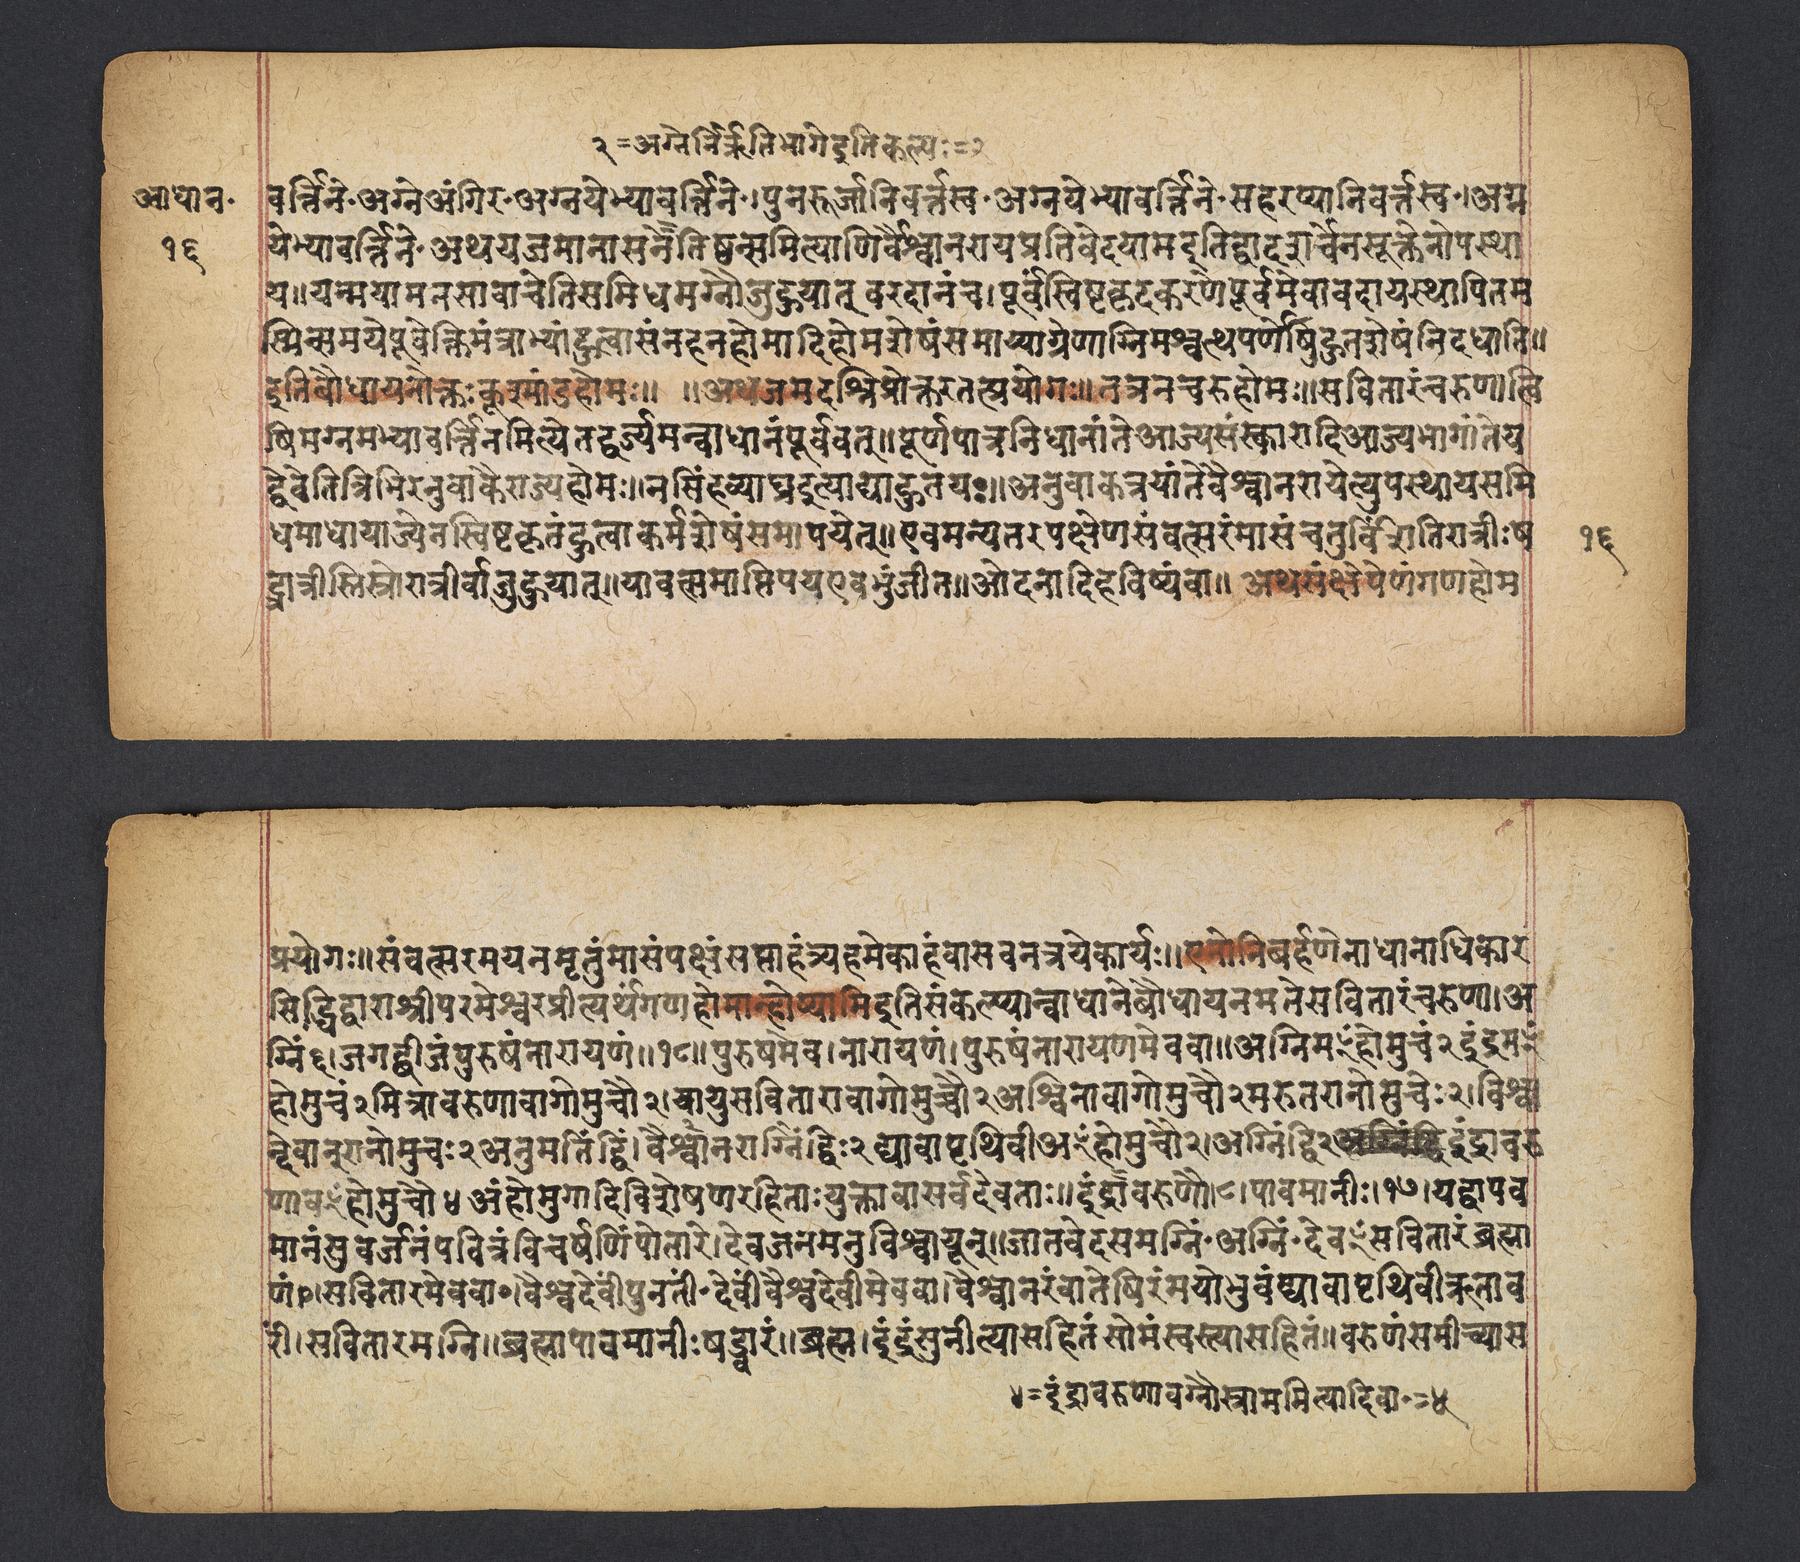 २=अग्नेर्निर्ऋतिभागेइतिकल्पः=२
आधान॰
१६
वर्त्तिने॰अग्नेअंगिर॰अग्नयेभ्यावर्त्तिने॰।पुनरूर्जानिवर्त्तस्व॰अग्नयेभ्यावर्त्तिने॰सहरय्यानिवर्त्तस्व॰।अग्न
येभ्यावर्त्तिने॰अथयजमानासनेतिष्ठन्समित्पाणिर्वैश्वानरायप्रतिवेदयामइतिद्वादशर्चेनसूक्तेनोपस्था
य॥यन्मयामनसावाचेतिसमिधमग्नौजुहुयात् वरदानंच।पूर्वंस्विष्टकृदकरणेपूर्वमेवावदायस्थापितम
स्मिन्समयेपूर्वोक्तमंत्राभ्यांहुत्वासंनहनहोमादिहोमशेषंसमाप्याग्रेणाग्निमश्वत्थपर्णेषुहुतशेषंनिदधाति॥
इतिबौधायनोक्तःकूश्मांडहोमः॥ ॥अथजमदग्निप्रोक्तरतत्प्रयोगः॥तत्रनचरुहोमः॥सवितारंचरुणात्वि
षिमग्नमभ्यावर्त्तिनमित्येतद्वर्ज्यमन्वाधानंपूर्ववत्॥पूर्णपात्रनिधानांतेआज्यसंस्कारादिआज्यभागांतेय
द्देवेतित्रिभिरनुवाकैराज्यहोमः॥नसिंहव्याघ्रइत्याद्याहुतयः॥अनुवाकत्रयांतेवैश्वानरायेत्युपस्थायसमि
धमाधायाज्येनस्विष्टकृतंहुत्वाकर्मशेषंसमापयेत्॥एवमन्यतरपक्षेणसंवत्सरंमासंचतुर्विंशतिरात्रीःष
१६
ड्रात्रीस्तिस्रोरात्रीर्वाजुहुयात्॥यावत्समाप्तिपयएवभुंजीत॥ओदनादिहविष्यंवा॥ अथसंक्षेपेणगणहोम
प्रयोगः॥संवत्सरमयनमृतुंमासंपक्षंसप्ताहंत्र्यहमेकाहंवासवनत्रयेकार्यः॥एनोनिबर्हणेनाधानाधिकार
सिद्धिद्वाराश्रीपरमेश्वरप्रीत्यर्थंगणहोमान्होष्यामिइतिसंकल्प्यान्वाधानेबौधायनमतेसवितारंचरुणा।अ
ग्निं६।जगद्बीजंपुरुषंनारायणं॥१८॥पुरुषमेव।नारायणं।पुरुषंनारायणमेववा॥अग्निमꣳहोमुचं२इंद्रमꣳ
होमुचं२मित्रावरुणावागोमुचौ२।वायुसवितारावागोमुचौ२अश्विनावागोमुचौ२मरुतरानोमुचेः२।विश्वा
न्देवानुरानोमुचः२अनुमतिंद्विं।वैश्वानराग्निंद्विः२द्यावापृथिवीअꣳहोमुचौ२।अग्निंद्वि२इंद्रावरु
णावꣳहोमुचौ४अंहोमुगादिविशेषणरहिताःयुक्तावासर्वदेवताः॥इंद्रावरुणौ।८।पावमानीः।१७।यद्वापव
मानंसुवर्जनंपवित्रंविचर्षणिंपोतारे।देवजनमनुविश्वायून्॥जातवेदसमग्निं॰अग्निं॰देवꣳसवितारंब्रह्मा
णं।सवितारमेववा॰।वैश्वदेवींपुनतीं॰देवींवैश्वदेवीमेववा।वैश्वानरंवातेषिरंमयोभुवंद्यावापृथिवीऋताव
री।सवितारमग्नि॥ब्रह्मापावमानीःषड्वारं॥ब्रह्म।इंद्रंसुनीत्यासहितंसोमंस्वस्त्यासहितं॥वरुणंसमीच्यास
४=इंद्रावरुणावग्नौस्राममित्यादिवा॰=४